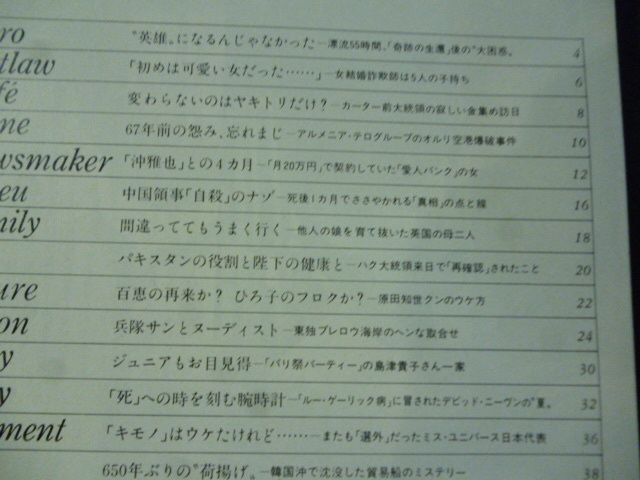 ro “英雄〟になるんじゃなかった―漂流55時間、「奇跡の生還」後の“大困惑〟 4
tlaw 「初めは可愛い女だった……」―女結婚詐欺師は5人の子持ち 6
fé 変わらないのはヤキトリだけ？―カーター前大統領の寂しい金集め訪日 8
ne 67年前の怨み、忘れまじ―アルメニア・テログループのオルリ空港爆破事件 10
wsmaker 「沖雅也」との4カ月―「月20万円」で契約していた「愛人バンク」の女 12
eu 中国領事「自殺」のナゾ―死後1カ月でささやかれる「真相」の点と線 16
mily 間違っててもうまく行く―他人の娘を育て抜いた英国の母二人 18
パキスタンの役割と陛下の健康と―ハク大統領来日で「再確認」されたこと 20
ure 百恵の再来か？ ひろ子のフロクか？―原田知世クンのウケ方 22
on 兵隊サンとヌーディスト―東独プレロウ海岸のヘンな取合せ 24
y ジュニアもお目見得―「パリ祭パーティー」の島津貴子さん一家 30
y 「死」への時を刻む腕時計―「ルー・ゲーリック病」に冒されたデビッド・ニーヴンの“夏〟 32
ment 「キモノ」はウケたけれど……―またも「選外」だったミス・ユニバース日本代表 36
650年ぶりの“荷揚げ〟―韓国沖で沈没した貿易船のミステリー 38